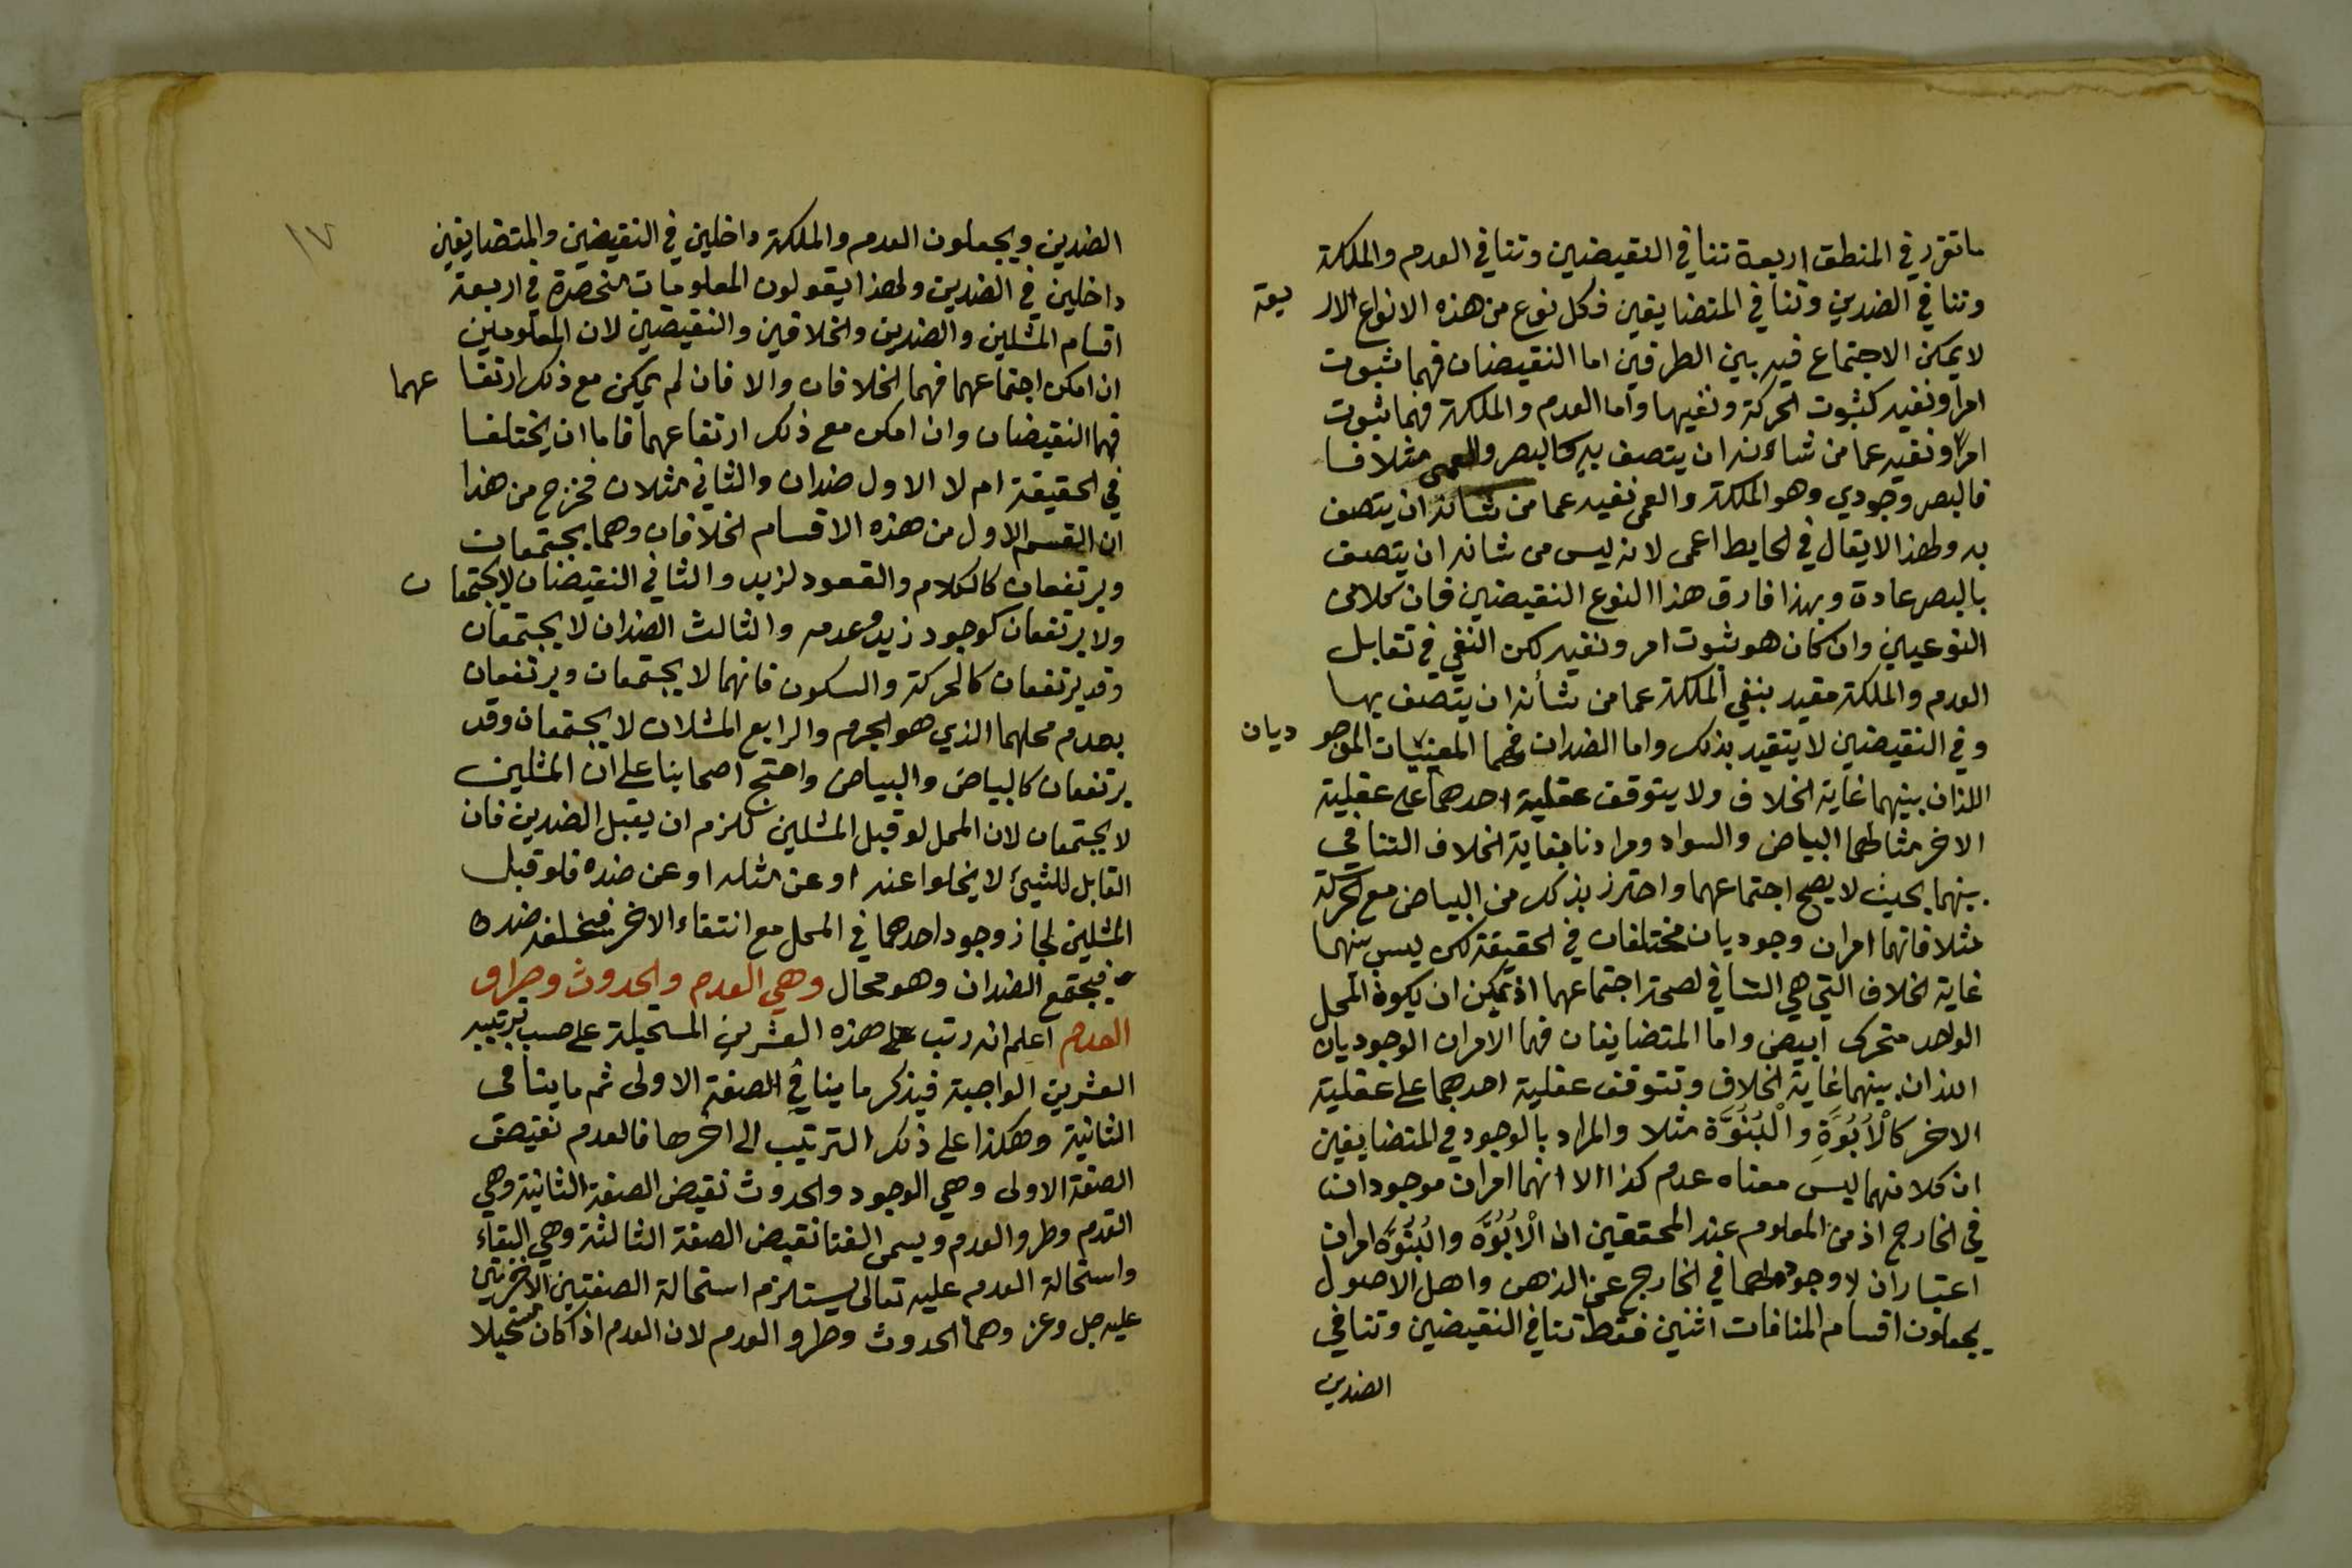 ما تقرر في المنطق اربعة تنافي النقيضين وتنافي العدم والملكة
وتنافي الضدين وتنافي المتضايفين فكل نوع من هذه الانواع الاربعة
لا يمكن الاجتماع فيه بين الطرفين اما النقيضان فهما ثبوت
امر ونفيه كثبوت الحركة ونفيها واما العدم والملكة فهما ثبوت
امر ونفيه عما من شأنه ان يتصف به كالبصر والعمى مثلا فا
فالبصر وجودي وهو الملكة والعمى نفيه عما من شانه ان يتصف
به ولهذا لا يقال في الحايط اعمى لانه ليس من شانه ان يتصف
بالبصر عادة وبهذا فارق هذا النوع النقيضين فان كلا من
النوعين وان كان هو ثبوت امر ونفيه لكن النفي في تقابل
العدم والملكة مقيد بنفي الملكة عما من شأنه ان يتصف بها
وفي النقيضين لا يتقيد بذلك واما الضدان فهما المعنيان الموجوديان
اللذان بينهما غاية الخلاف ولا يتوقف عقلية احدهما على عقلية
الاخر مثالهما البياض والسواد ومرادنا بغاية الخلاف التنافي
بينهما بحيث لا يصح اجتماعهما واحترز بذلك من البياض مع الحركة
مثلا فانهما امران وجوديان مختلفان في الحقيقة لكن ليس بينهما
غاية الخلاف التي هي التنافي لصحة اجتماعهما اذ يمكن ان يكون المحل
الواحد متحرك ابيض واما المتضايفان فهما الامران الوجوديان
اللذان بينهما غاية الخلاف وتتوقف عقلية احدهما على عقلية
الاخر كالْاُبُوَّةِ والْبُنُوَّة مثلا والمراد بالوجود في المتضايفين
ان كلا منهما ليس معناه عدم كذا الا انهما امران موجودان
في الخارج اذ من المعلوم عند المحققين ان الْاُبُوَّه والبُنُوَّه امران
اعتباران لا وجود لهما في الخارج عن الذهن واهل الاصول
يجعلون اقسام المنافات اثنين فقط تنافي النقيضين وتنافي
الضدين
١٧
الضدين ويجعلون العدم والملكة داخلين في النقيضين والمتضايفين
داخلين في الضدين ولهذا يقولون المعلومات منحصرة في اربعة
اقسام المثلين والضدين والخلافين والنقيضين لان المعلومين
ان امكن اجتماعهما فهما الخلافان والا فان لم يمكن مع ذلك ارتفاعهما
فهما النقيضان وان امكن مع ذلك ارتفاعهما فاما ان يختلفا
في الحقيقة ام لا الاول ضدان والثاني مثلان فخرج من هذا
ان القسم الاول من هذه الاقسام الخلافان وهما يجتمعان
ويرتفعان كالكلام والقعود لزيد والثاني النقيضان لا يجتمعان
ولا يرتفعان كوجود زيد وعدمه والثالث الضدان لا يجتمعان
وقد يرتفعان كالحركة والسكون فانهما لا يجتمعان ويرتفعان
بعدم محلهما الذي هو الجرم والرابع المثلان لا يجتمعان وقد
يرتفعان كالبياض والبياض واحتج اصحابنا على ان المثلين
لا يجتمعان لان المحل لو قبل المثلين للزم ان يقبل الضدين فان
القابل للشيئ لا يخلوا عنه او عن مثله او عن ضده فلو قبل
المثلين لجاز وجود احدهما في المحل مع انتفاء الاخر فيخلفه ضده
فيجتمع الضدان وهو محال وهي العدم والحدوث وطرو
العدم اعلم انه رتب على هذه العشرين المستحيلة على حسب ترتيبه
العشرين الواجبة فيذكر ما ينافي الصفة الاولى ثم ما ينافى
الثانية وهكذا على ذلك الترتيب الى اخرها فالعدم نقيض
الصفة الاولى وهي الوجود والحدوث نقيض الصفة الثانية وهي
القدم وطرو العدم ويسمى الفنا نقيض الصفة الثالثة وهي البقاء
واستحالة العدم عليه تعالى يستلزم استحالة الصفتين الاخرتين
عليه جل وعز وهما الحدوث وطرو العدم لان العدم اذا كان مستحيلا